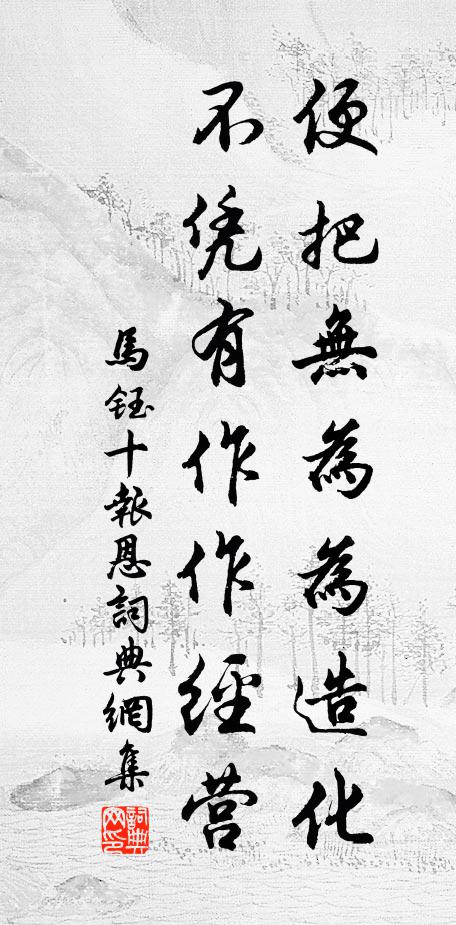 便把無為為造化
不凭有作作經营
馬鈺十報恩詞典網集
詞典网印